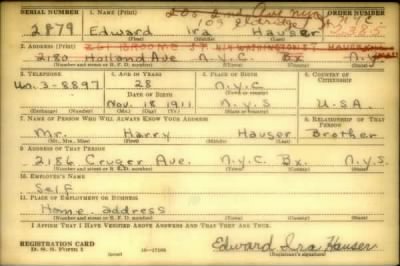 200 2nd Ave N.Y.C.
SERIAL NUMBER 1. NAME (Print) 109 Eldridge St. N.Y.C. ORDER NUMBER
2879 Edward Ira Hauser 2385
(First) (Middle) (Last)
2. ADDRESS (Print) 261 BROOME ST.
2180 Holland Ave N.Y.C. Bx. N.Y.
(Number and street or R. F. D. number) (Town) (County) (State)
3. TELEPHONE 4. AGE IN YEARS 5. PLACE OF BIRTH 6. COUNTRY OF CITIZENSHIP
28 N.Y.C.
(Town or county)
Un. 3-8897 DATE OF BIRTH
Nov. 18, 1911 N.Y.S U.S.A.
(Exchange) (Number) (Mo.) (Day) (Yr.) (State or country)
7. NAME OF PERSON WHO WILL ALWAYS KNOW YOUR ADDRESS 8. RELATIONSHIP OF THAT PERSON
Mr. Harry Hauser Brother
(Mr., Mrs., Miss) (First) (Middle) (Last)
9. ADDRESS OF THAT PERSON
2186 Cruger Ave. N.Y.C. Bx. N.Y.S.
(Number and street or R. F. D. number) (Town) (County) (State)
10. EMPLOYER'S NAME
Self
11. PLACE OF EMPLOYMENT OR BUSINESS
Home address
(Number and street or R. F. D. number) (Town) (County) (State)
I AFFIRM THAT I HAVE VERIFIED ABOVE ANSWERS AND THAT THEY ARE TRUE.
REGISTRATION CARD
D. S. S. Form 1 (over) 16-17105 Edward Ira Hauser
(Registrant's signature)